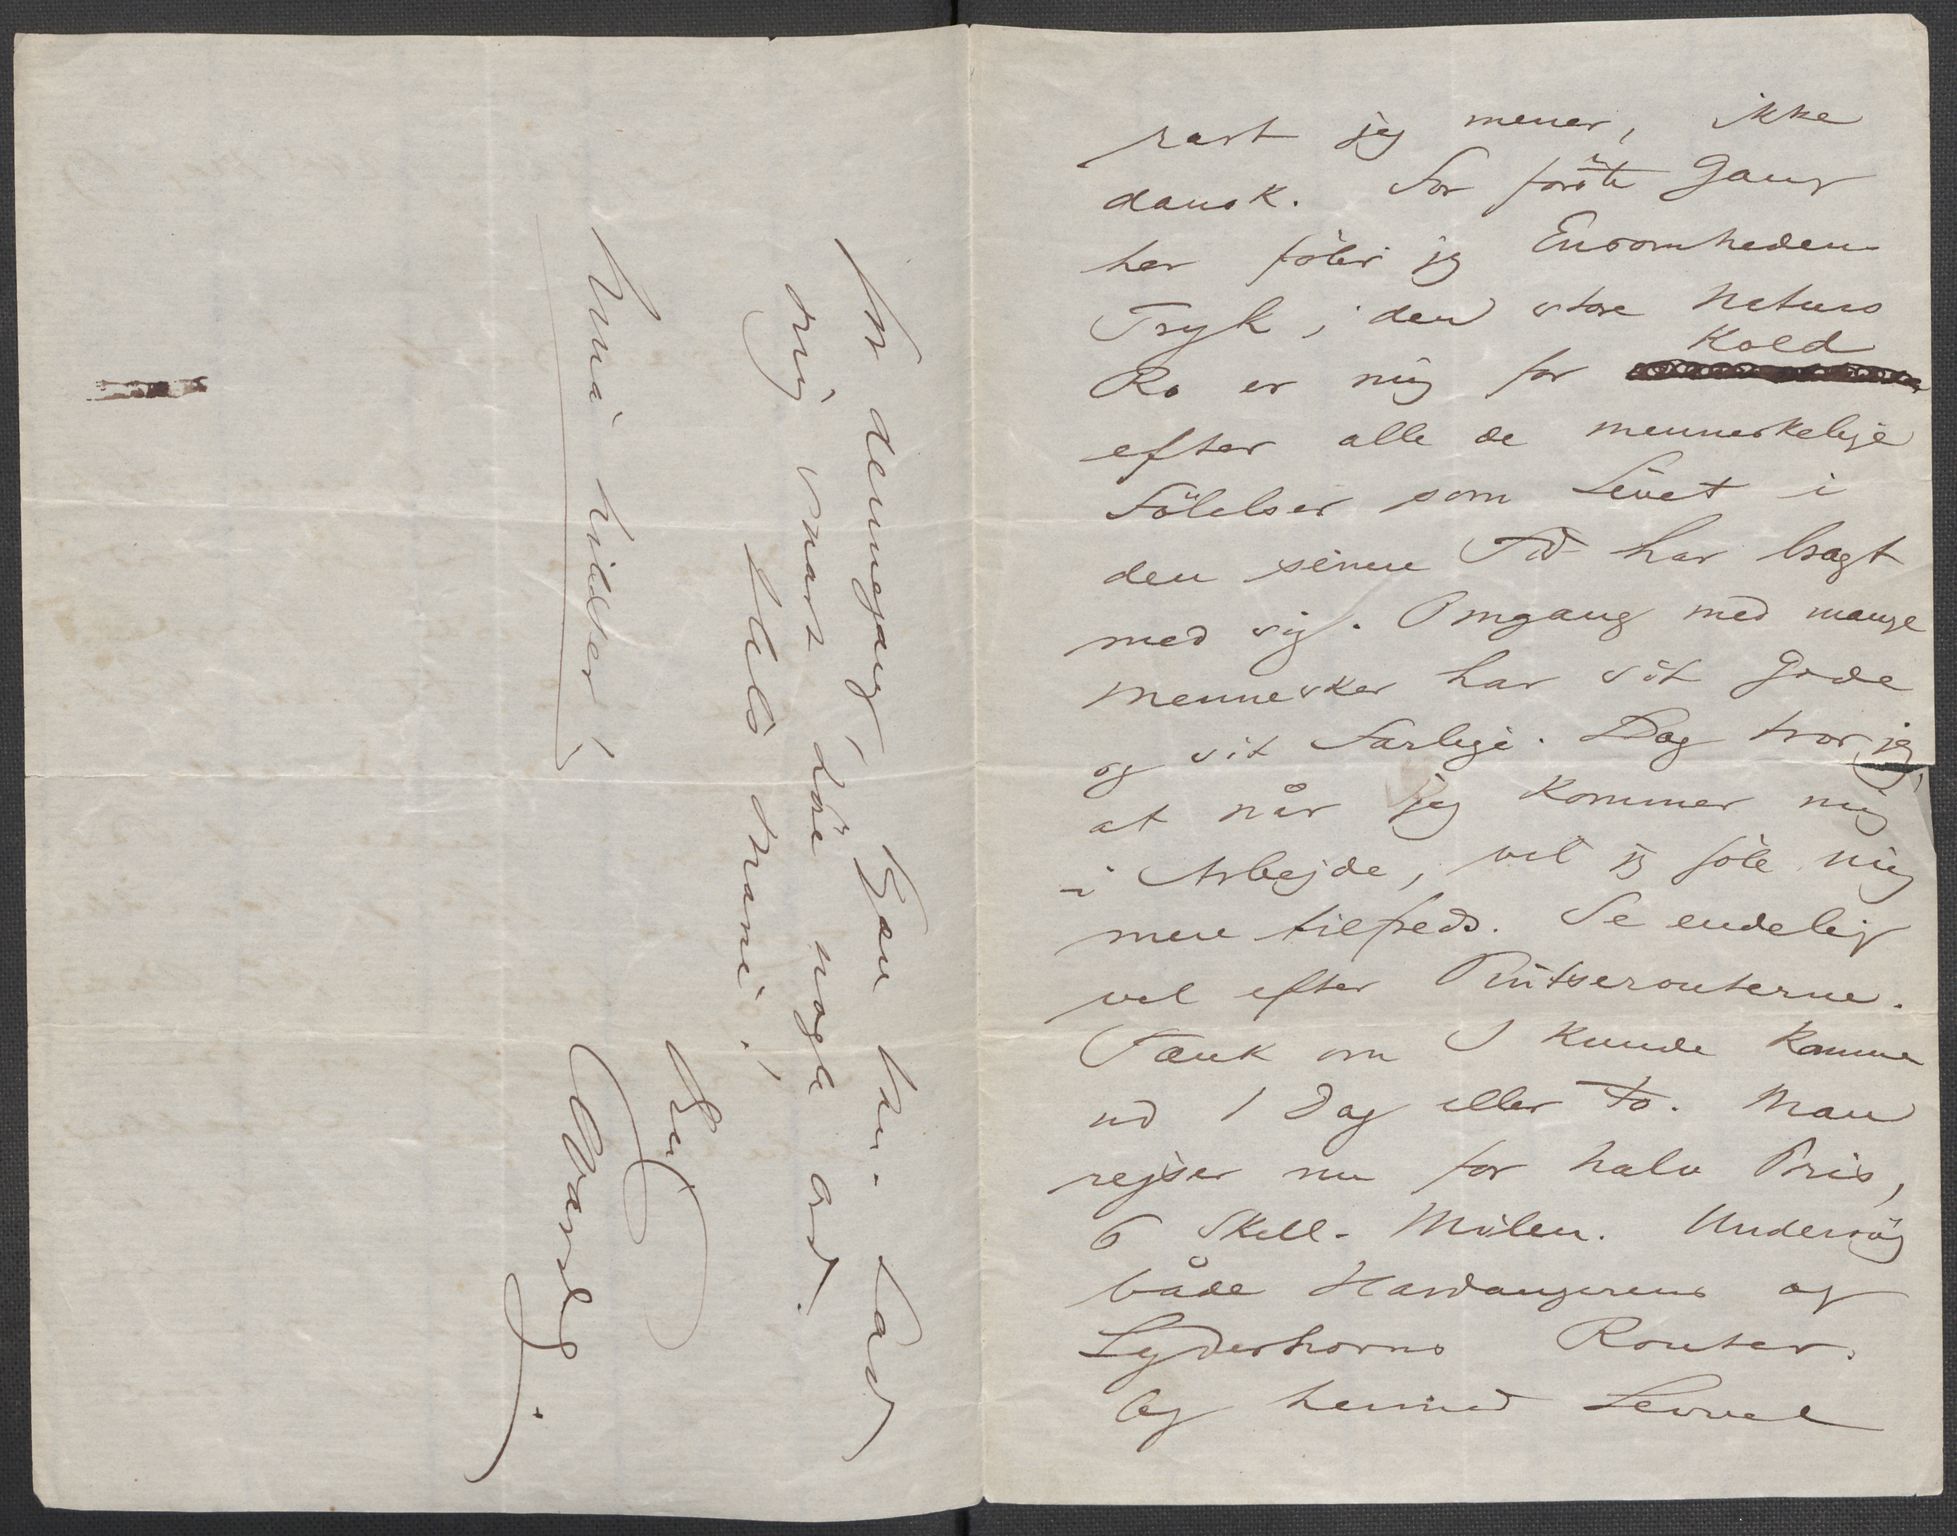 rart jeg mener, ikke
dansk. For förste Gang
her föler jeg Ensomhedens
Tryk i den store Naturs
Kold
Ro er mig for
efter alle de menneskelige
Fölelser som Livet i
den senere Tid har bragt
med sig. Omgang med mange
Mennesker har sit Gode
og sit Farlige. Dog tror jeg,
at når jeg kommer mig
i Arbejde, vil jeg föle mig
mere tilfreds. Se endelig
vel efter Pintserouterne.
Tænk om I kunde komme
ud 1 Dag eller to. Man
rejser nu for halv Pris,
6 Skill. Milen. Undersög
både Hardangerens og
Lyderhorns Router.
Og hermed Levvel
for dennegang, kjære Ven. Lad
mig snart höre nogle ord.
Hils Marie!
Din
Edvard.
Nina hilser!